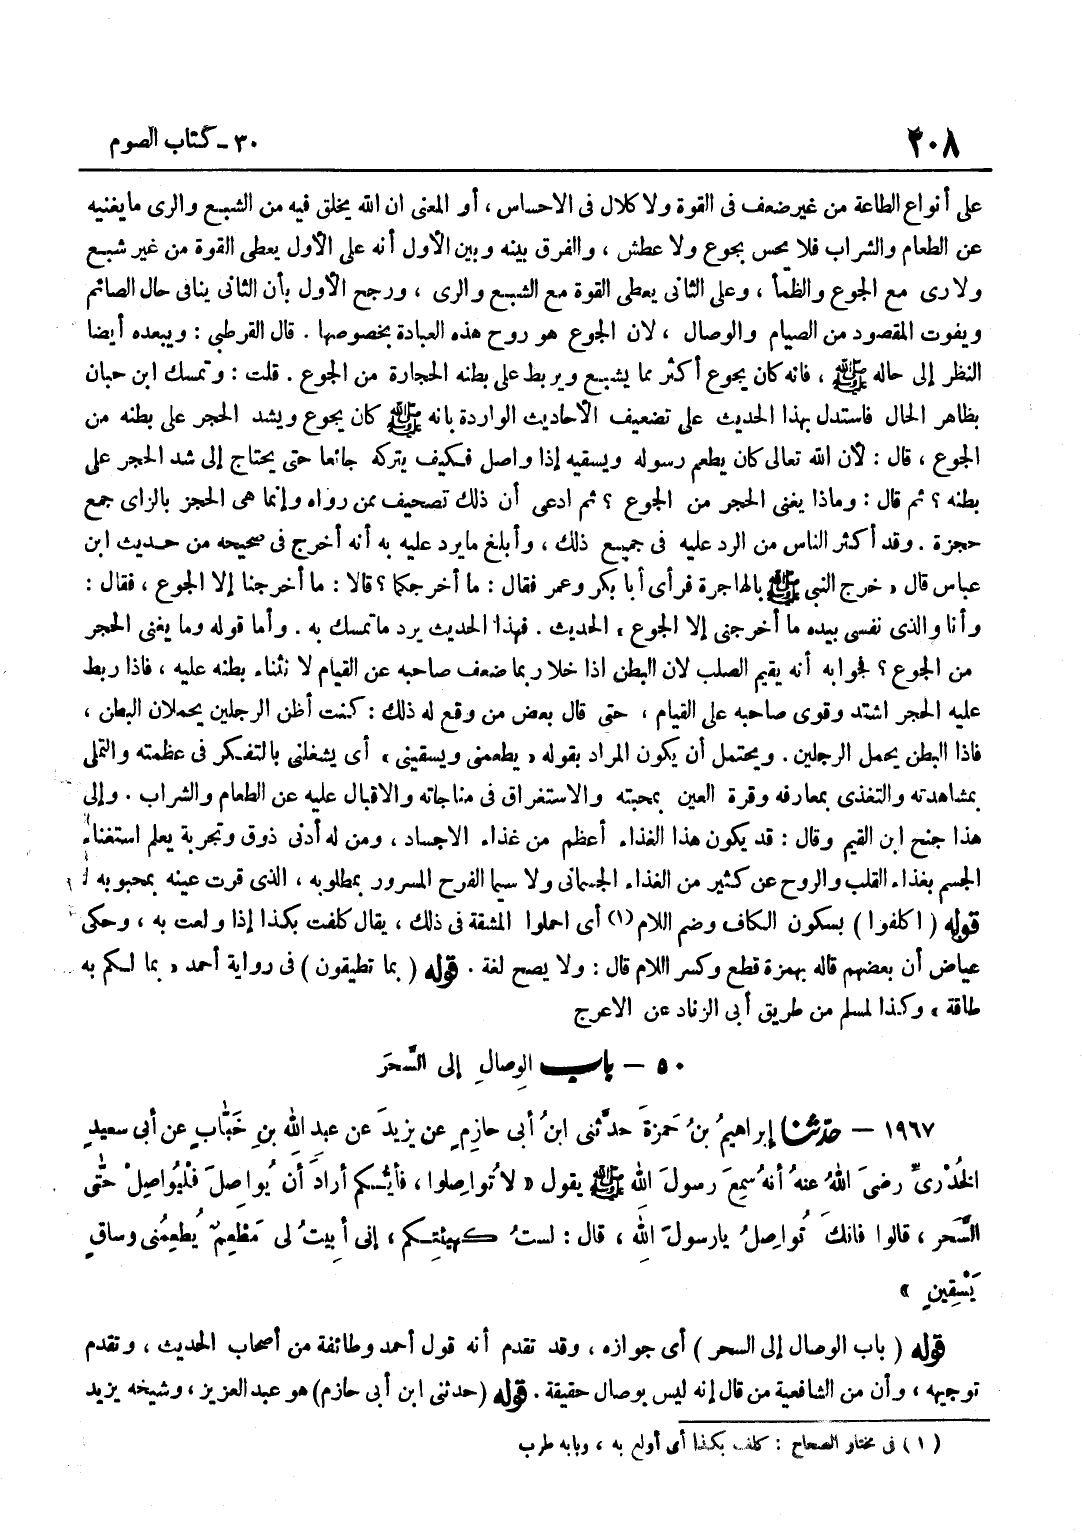 ٢٠٨
٣٠ - كتاب الصوم
على أنواع الطاعة من غير ضعف فى القوة ولا كلال فى الاحساس ، أو المعنى ان الله يخلق فيه من الشبع والرى ما يغنيه
عن الطعام والشراب فلا يحس بجوع ولا عطش ، والفرق بينه وبين الأول أنه على الأول يعطى القوة من غير شبع
ولا رى مع الجوع والظمأ ، وعلى الثانى يعطى القوة مع الشبع والرى ، ورجح الأول بأن الثانى ينافى حال الصائم
ويفوت المقصود من الصيام والوصال ، لان الجوع هو روح هذه العبادة بخصوصها . قال القرطبي : ويبعده أيضا
النظر إلى حاله ﷺ ، فانه كان يجوع أكثر مما يشبع ويربط على بطنه الحجارة من الجوع . قلت : وتمسك ابن حبان
بظاهر الحال فاستدل بهذا الحديث على تضعيف الأحاديث الواردة بانه ﷺ كان يجوع ويشد الحجر على بطنه من
الجوع ، قال : لأن الله تعالى كان يطعم رسوله ويسقيه إذا واصل فكيف يتركه جائعا حتى يحتاج إلى شد الحجر على
بطنه ؟ ثم قال : وماذا يغنى الحجر من الجوع ؟ ثم ادعى أن ذلك تصحيف ممن رواه وإنما هى الحجز بالزاى جمع
حجزة . وقد أكثر الناس من الرد عليه فى جميع ذلك ، وأبلغ ما يرد عليه به أنه أخرج فى صحيحه من حديث ابن
عباس قال « خرج النبي ﷺ بالهاجرة فرأى أبا بكر وعمر فقال : ما أخرجكما ؟ قالا : ما أخرجنا إلا الجوع ، فقال :
وأنا والذى نفسى بيده ما أخرجنى إلا الجوع » الحديث . فهذا الحديث يرد ما تمسك به . وأما قوله وما يغنى الحجر
من الجوع ؟ فجوابه أنه يقيم الصلب لان البطن اذا خلا ربما ضعف صاحبه عن القيام لا نثناء بطنه عليه ، فاذا ربط
عليه الحجر اشتد وقوى صاحبه على القيام ، حتى قال بعض من وقع له ذلك : كنت أظن الرجلين يحملان البطن ،
فاذا البطن يحمل الرجلين . ويحتمل أن يكون المراد بقوله « يطعمنى ويسقينى » أى يشغلنى بالتفكر فى عظمته والتملى
بمشاهدته والتغذى بمعارفه وقرة العين بمحبته والاستغراق فى مناجاته والاقبال عليه عن الطعام والشراب . وإلى
هذا جنح ابن القيم وقال : قد يكون هذا الغذاء أعظم من غذاء الاجساد ، ومن له أدنى ذوق وتجربة يعلم استغناء
الجسم بغذاء القلب والروح عن كثير من الغذاء الجسمانى ولا سيما الفرح المسرور بمطلوبه ، الذى قرت عينه بمحبوبه
قوله ( اكلفوا ) بسكون الكاف وضم اللام (١) أى احملوا المشقة فى ذلك ، يقال كلفت بكذا إذا ولعت به ، وحكى
عياض أن بعضهم قاله بهمزة قطع وكسر اللام قال : ولا يصح لغة . قوله ( بما تطيقون ) فى رواية أحمد « بما لكم به
طاقة » وكذا لمسلم من طريق أبى الزناد عن الاعرج
٥٠ - باب الوِصالِ إلى السَّحَر
١٩٦٧ - حدّثنا إبراهيمُ بنُ حَمزةَ حدَّثَنى ابنُ أبى حازِمٍ عن يزيدَ عن عبدِ اللهِ بنِ خَبّابٍ عن أبى سعيدٍ
الخُدْرىِّ رضىَ اللهُ عنهُ أنهُ سمِعَ رسولَ اللهِ ﷺ يقول « لا تُواصِلوا ، فأيُّكم أرادَ أن يُواصِلَ فَليُواصِلْ حتَّى
السَّحَر ، قالوا فانكَ تُواصِلُ يارسولَ اللهِ ، قال : لستُ كهيئتِكم ، إنى أبيتُ لى مُطْعِمٌ يُطعِمُنى وساقٍ
يَسْقِينِ »
قوله ( باب الوصال إلى السحر ) أى جوازه ، وقد تقدم أنه قول أحمد وطائفة من أصحاب الحديث ، وتقدم
توجيهه ، وأن من الشافعية من قال إنه ليس بوصال حقيقة . قوله (حدثنى ابن أبى حازم) هو عبد العزيز ، وشيخه يزيد
(١) فى مختار الصحاح : كلف بكذا أى أولع به ، وبابه طرب